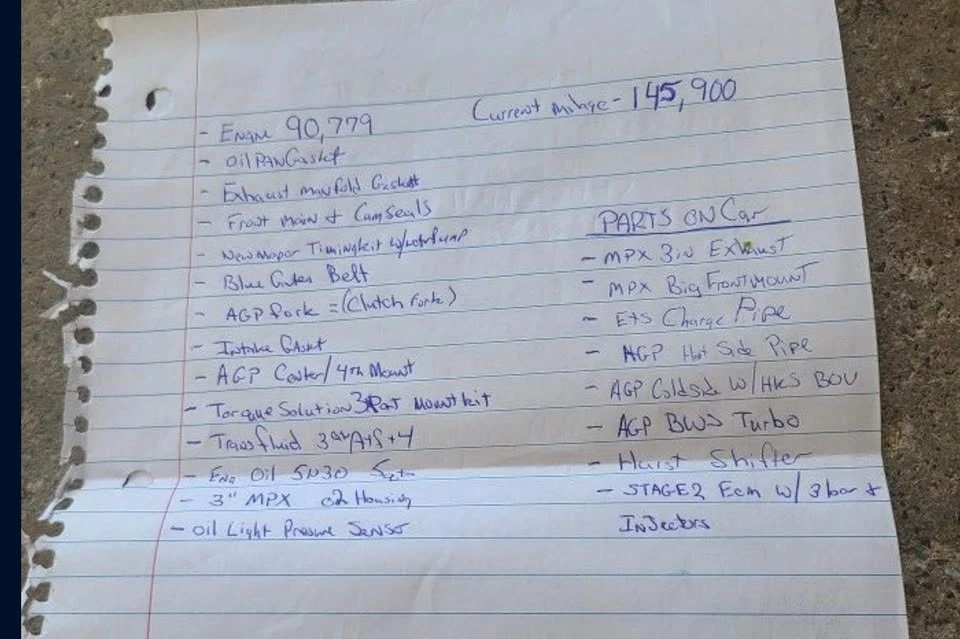 Current milage - 145,900
- Engine 90,779
- Oil PAN Gasket
- Exhaust manifold Gasket
- Front Main & Cam Seals
- New Mopar Timing kit w/ water Pump
- Blue Gates Belt
- AGP fork = (Clutch Fork)
- Intake Gasket
- AGP Center/4th Mount
- Torque Solution 3 Part mount kit
- Trans fluid 3 qt ATF+4
- Eng Oil 5W30
- 3" MPX o2 Housing
- Oil Light Pressure Sensor
PARTS ON Car
- MPX 3in Exhaust
- MPX Big Frontmount
- ETS Charge Pipe
- AGP Hot Side Pipe
- AGP Coldside W/ HKS BOV
- AGP BWS Turbo
- Hurst Shifter
- STAGE 2 Ecm W/ 3 bar &
Injectors